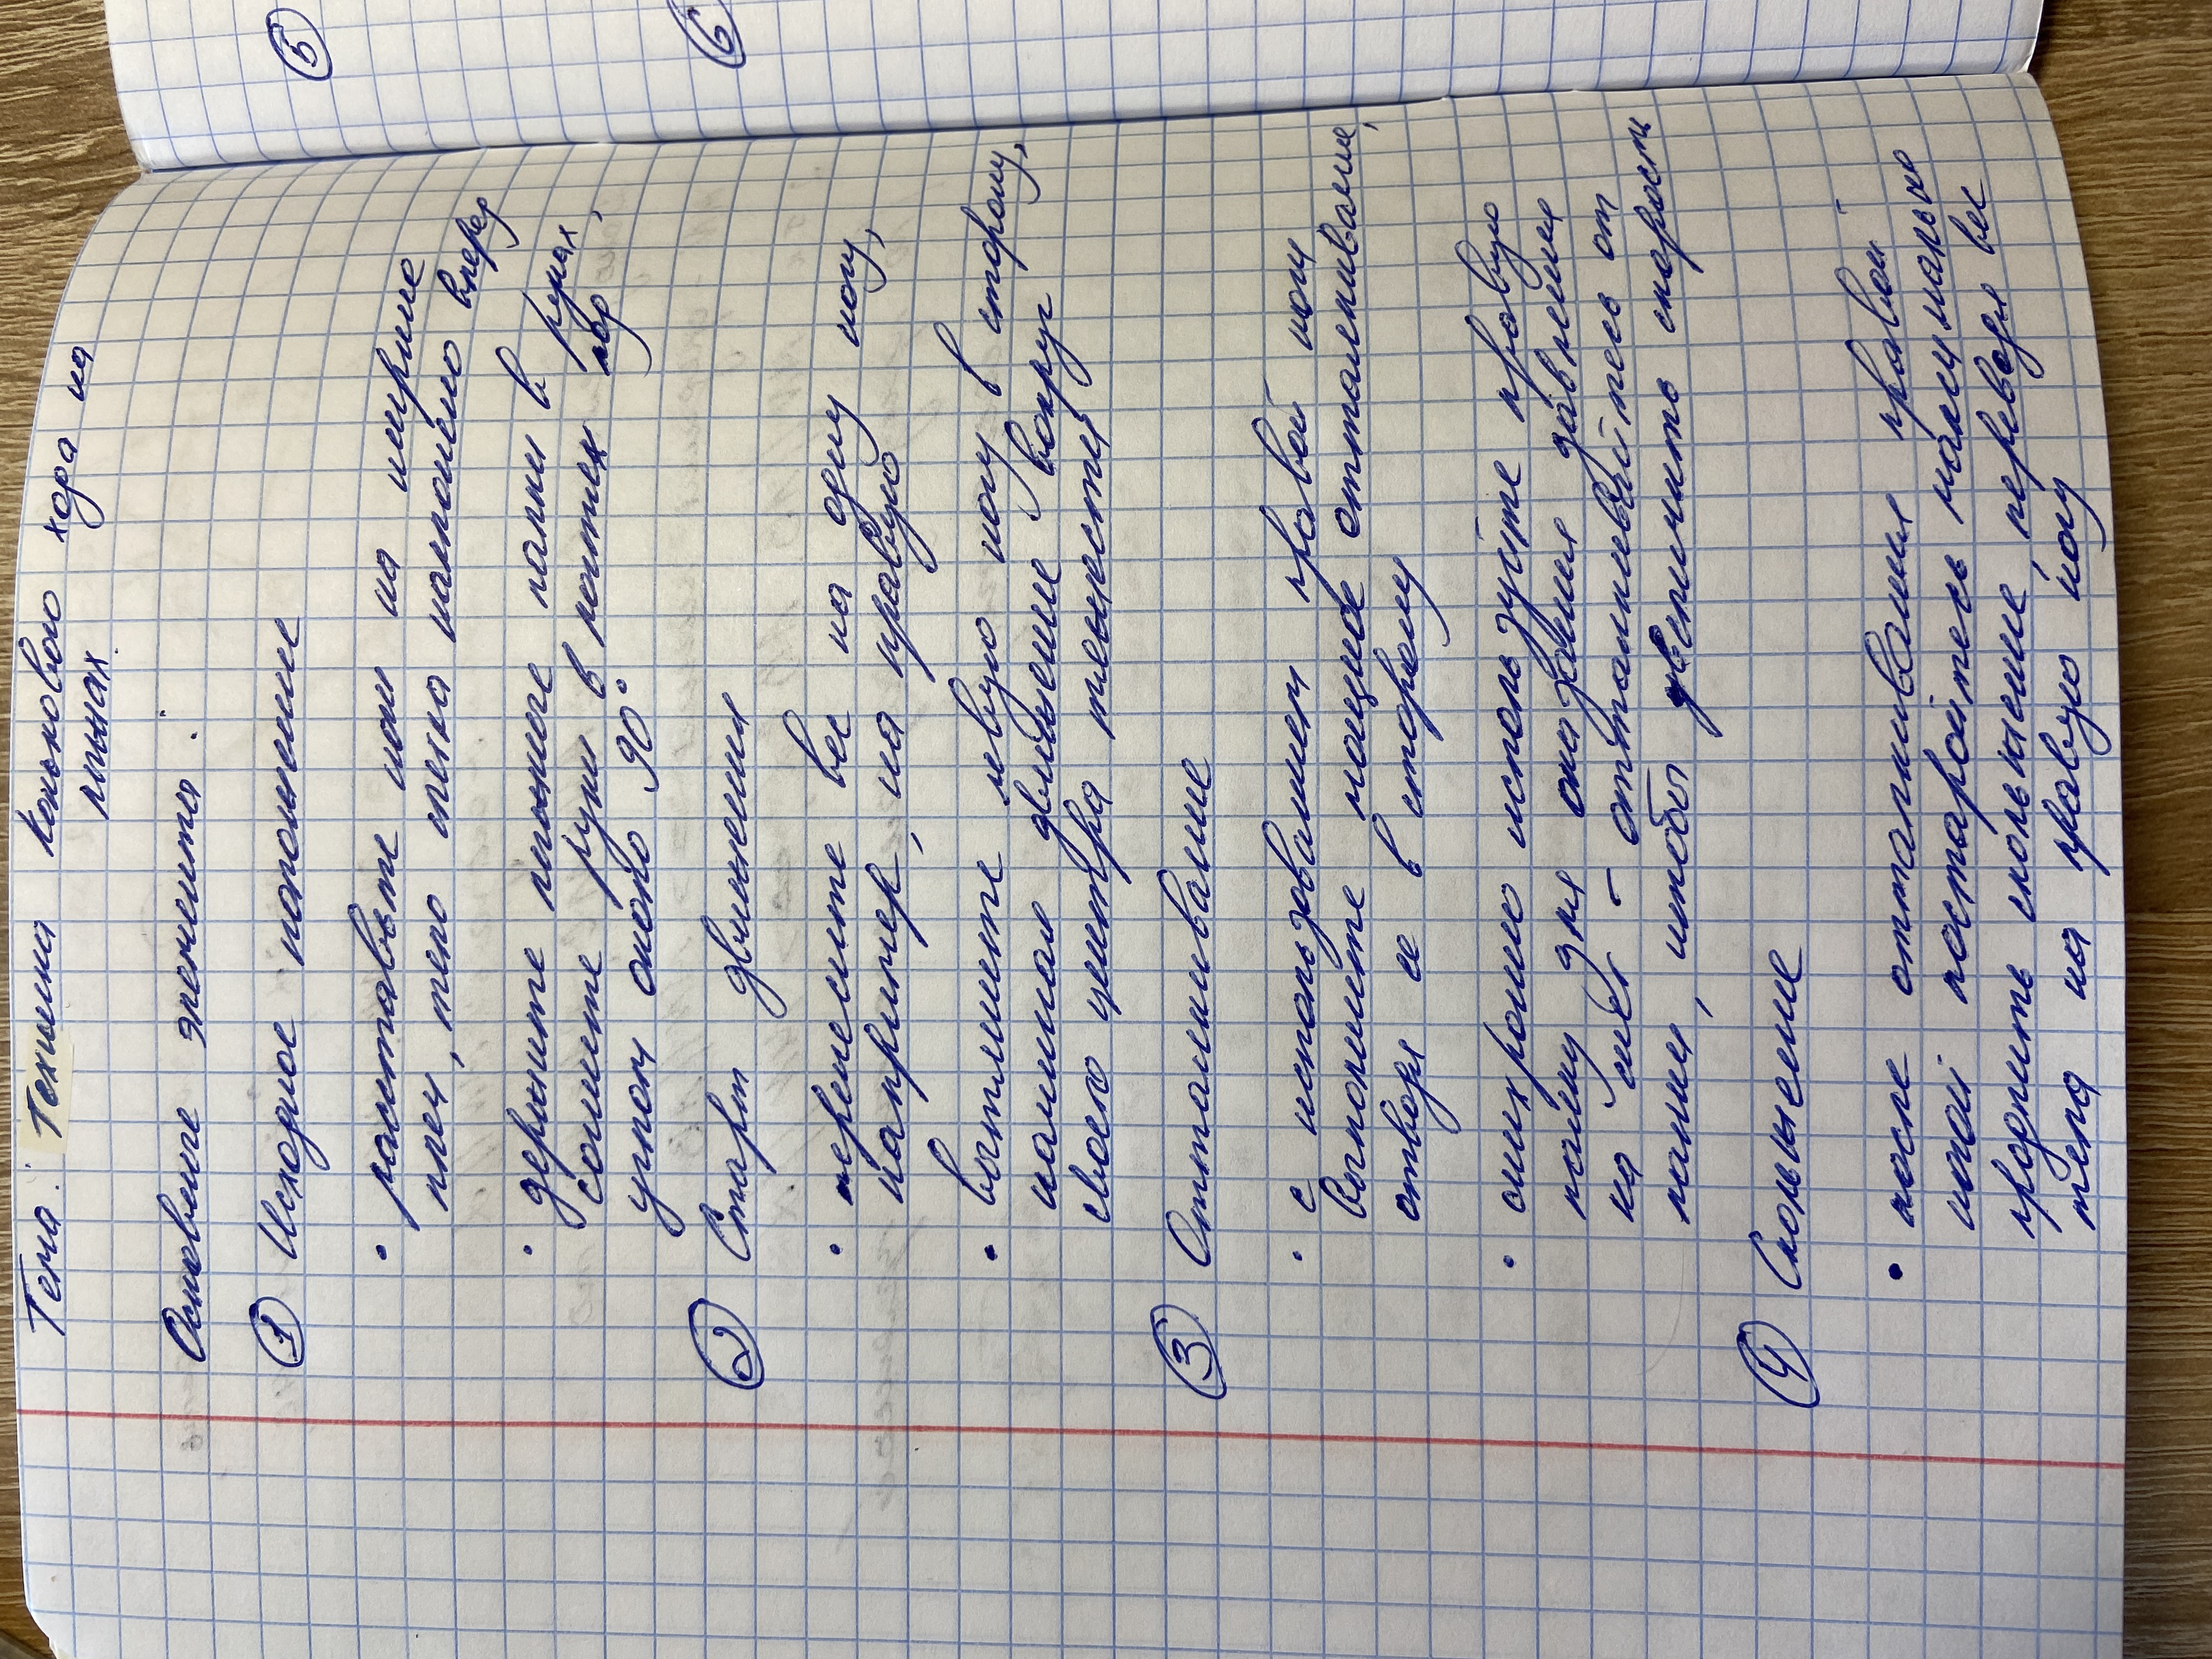 Тема: Техника конькового хода на
лыжах.
Основные элементы.
① Исходное положение
• поставьте ноги на ширине
плеч, тело слегка наклонено вперед
• держите лыжные палки в руках,
согните руки в локтях под
углом около 90°.
② Старт движения
• перенесите вес на одну ногу,
например, на правую
• вытяните левую ногу в сторону,
начиная движение вокруг
своего центра тяжести
③ Отталкивание
• с использованием правой ноги
выполните мощное отталкивание,
отводя ее в сторону
• синхронно используйте правую
палку для оказания давления
на снег - отталкивайтесь от
палки, чтобы увеличить скорость
④ Скольжение
• после отталкивания правой
ногой постарайтесь максимально
продлить скольжение, переводя вес
тела на правую ногу
⑤
⑥